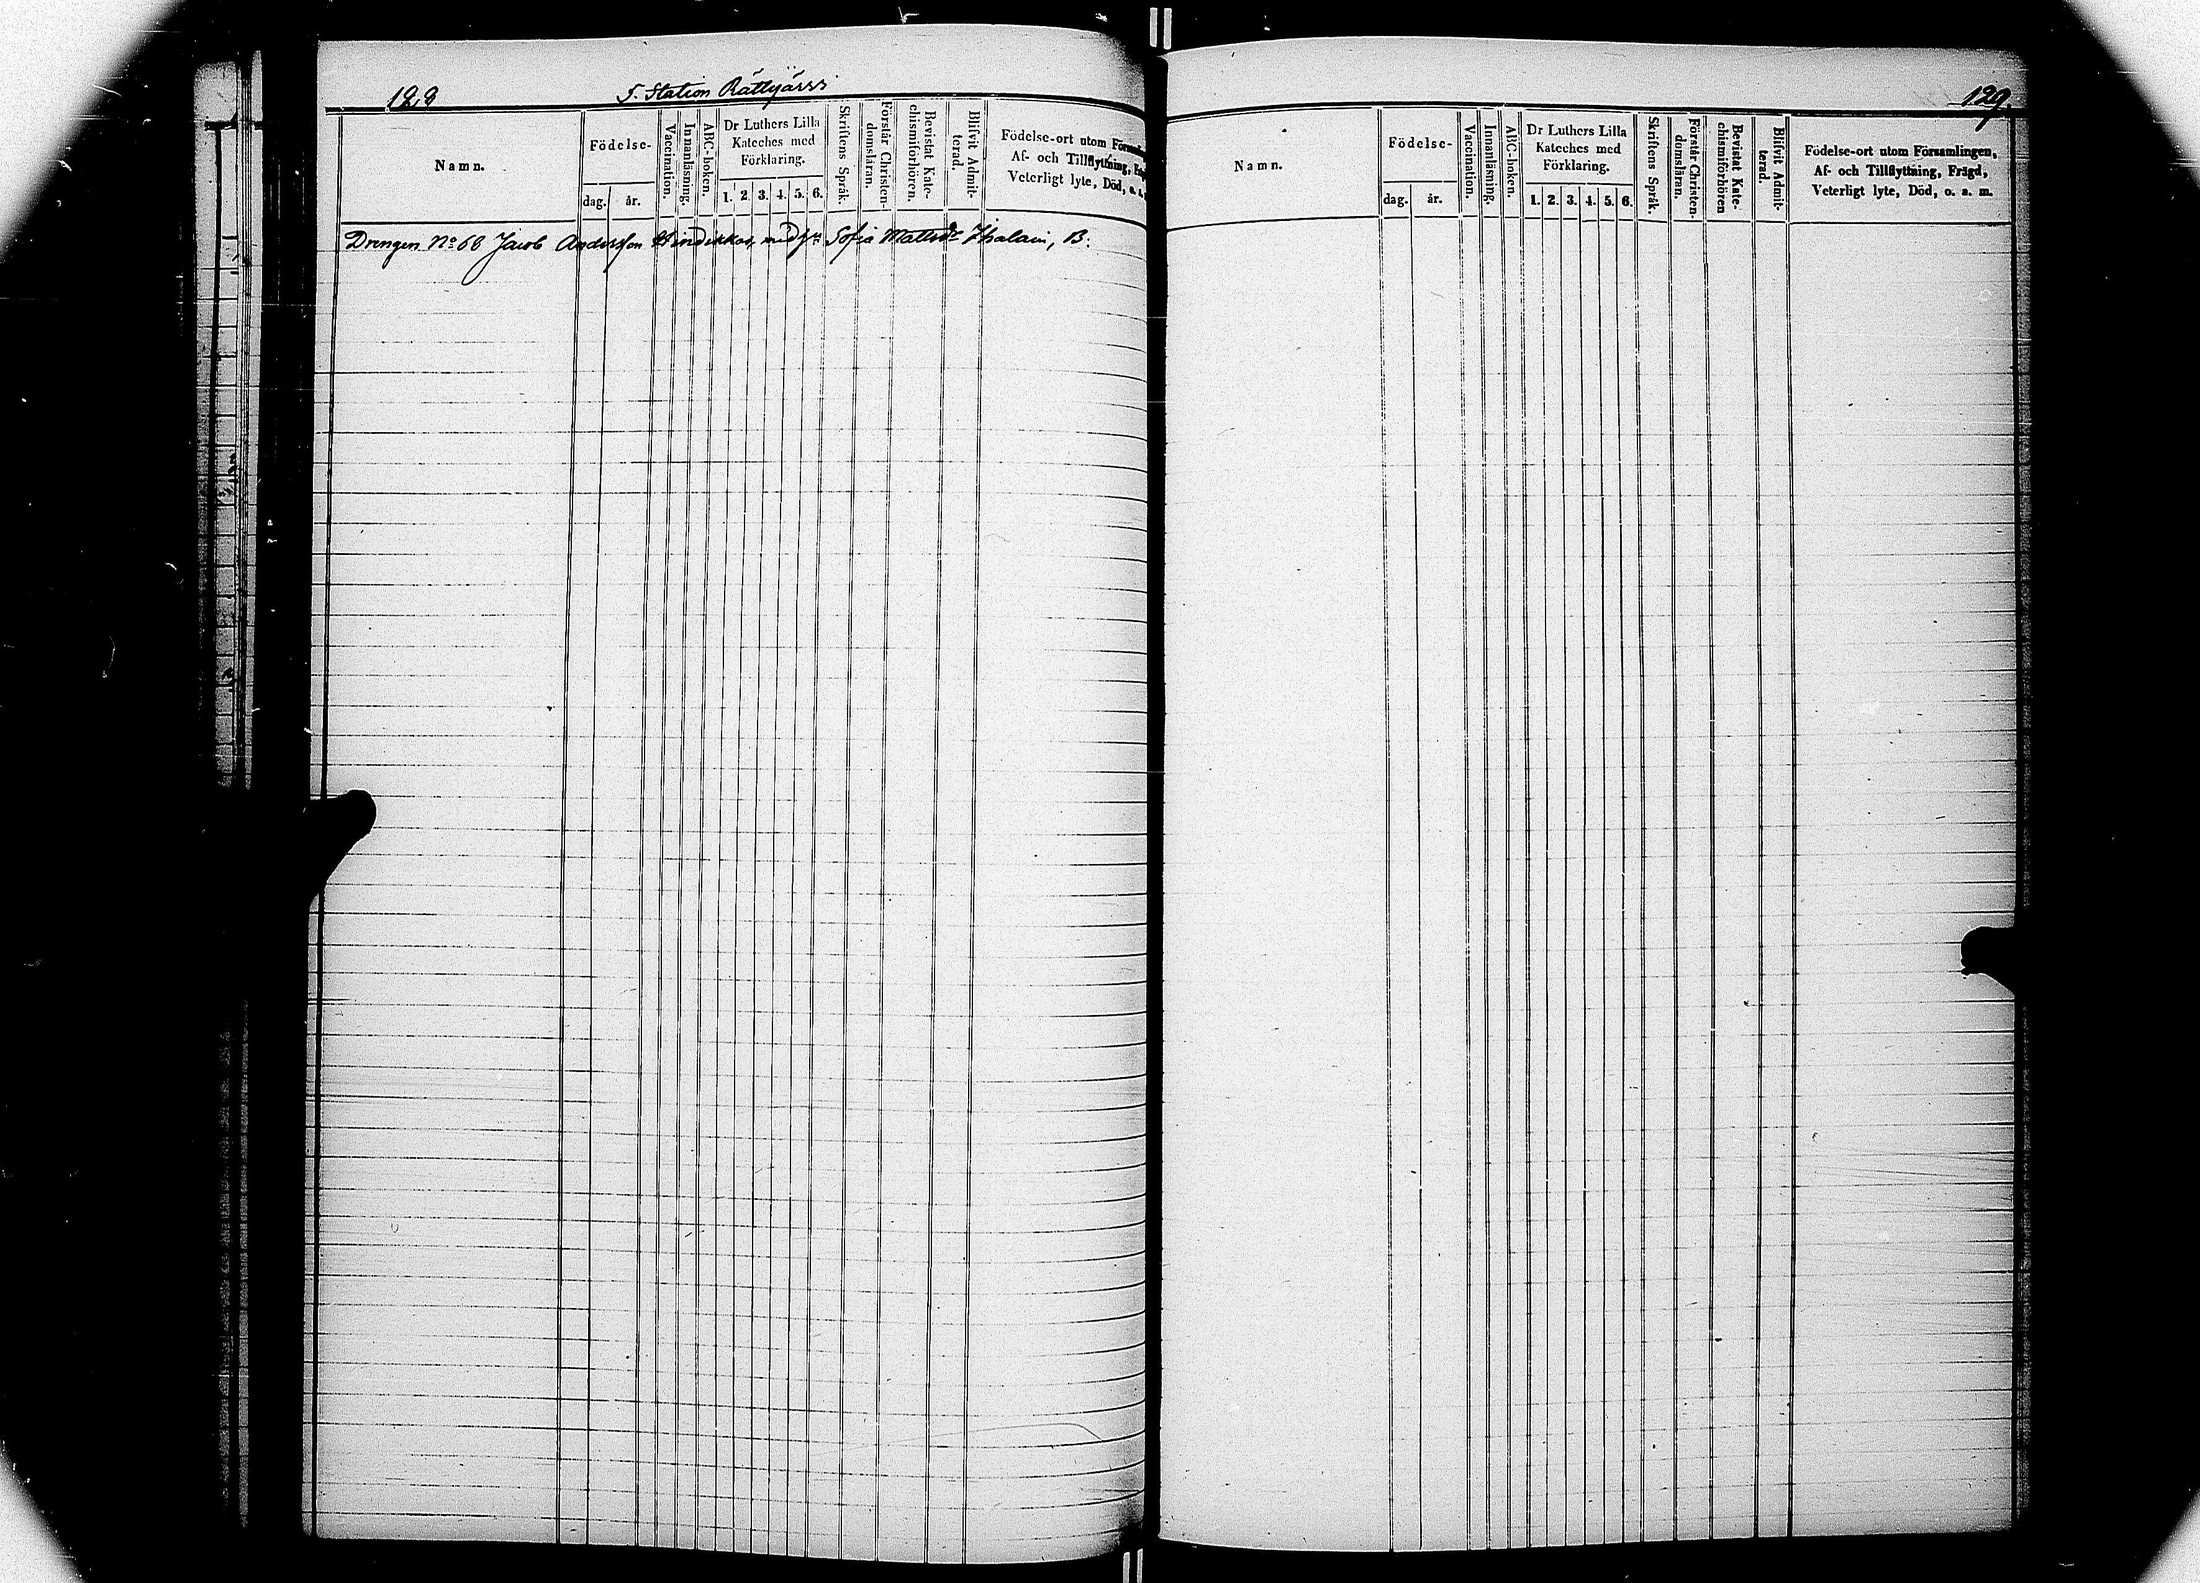 128
5. Station Rättyärvi
Namn.
Födelse-
dag.
år.
Vaccination.
Innanläsning.
ABC-boken.
Dr Luthers Lilla
Kateches med
Förklaring.
1. 2. 3. 4. 5. 6.
Skriftens Språk.
Förstår Christen-
domsläran.
Bevistat Kate-
chismiförhören.
Blifvit Admit-
terad.
Födelse-ort utom
Af- och Tillflyttning,
Veterligt lyte, Död, o. a.
Drengen No 68 Jacob Andersson med Sofia Matts B.
129.
Namn.
Födelse-
dag.
år.
Vaccination.
Innanläsning.
ABC-boken.
Dr Luthers Lilla
Kateches med
Förklaring.
1. 2. 3. 4. 5. 6.
Skriftens Språk.
Förstår Christen-
domsläran.
Bevistat Kate-
chismiförhören
Blifvit Admit-
terad.
Födelse-ort utom Församlingen,
Af- och Tillflyttning, Frägd,
Veterligt lyte, Död, o. a. m.